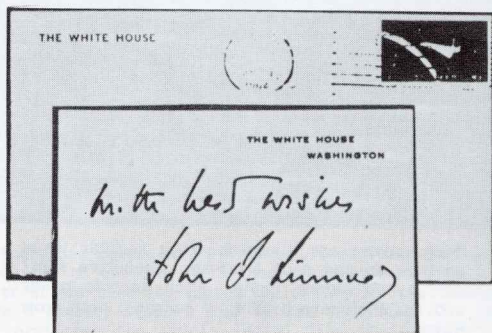 THE WHITE HOUSE
THE WHITE HOUSE
WASHINGTON
with best wishes
John F. Kennedy